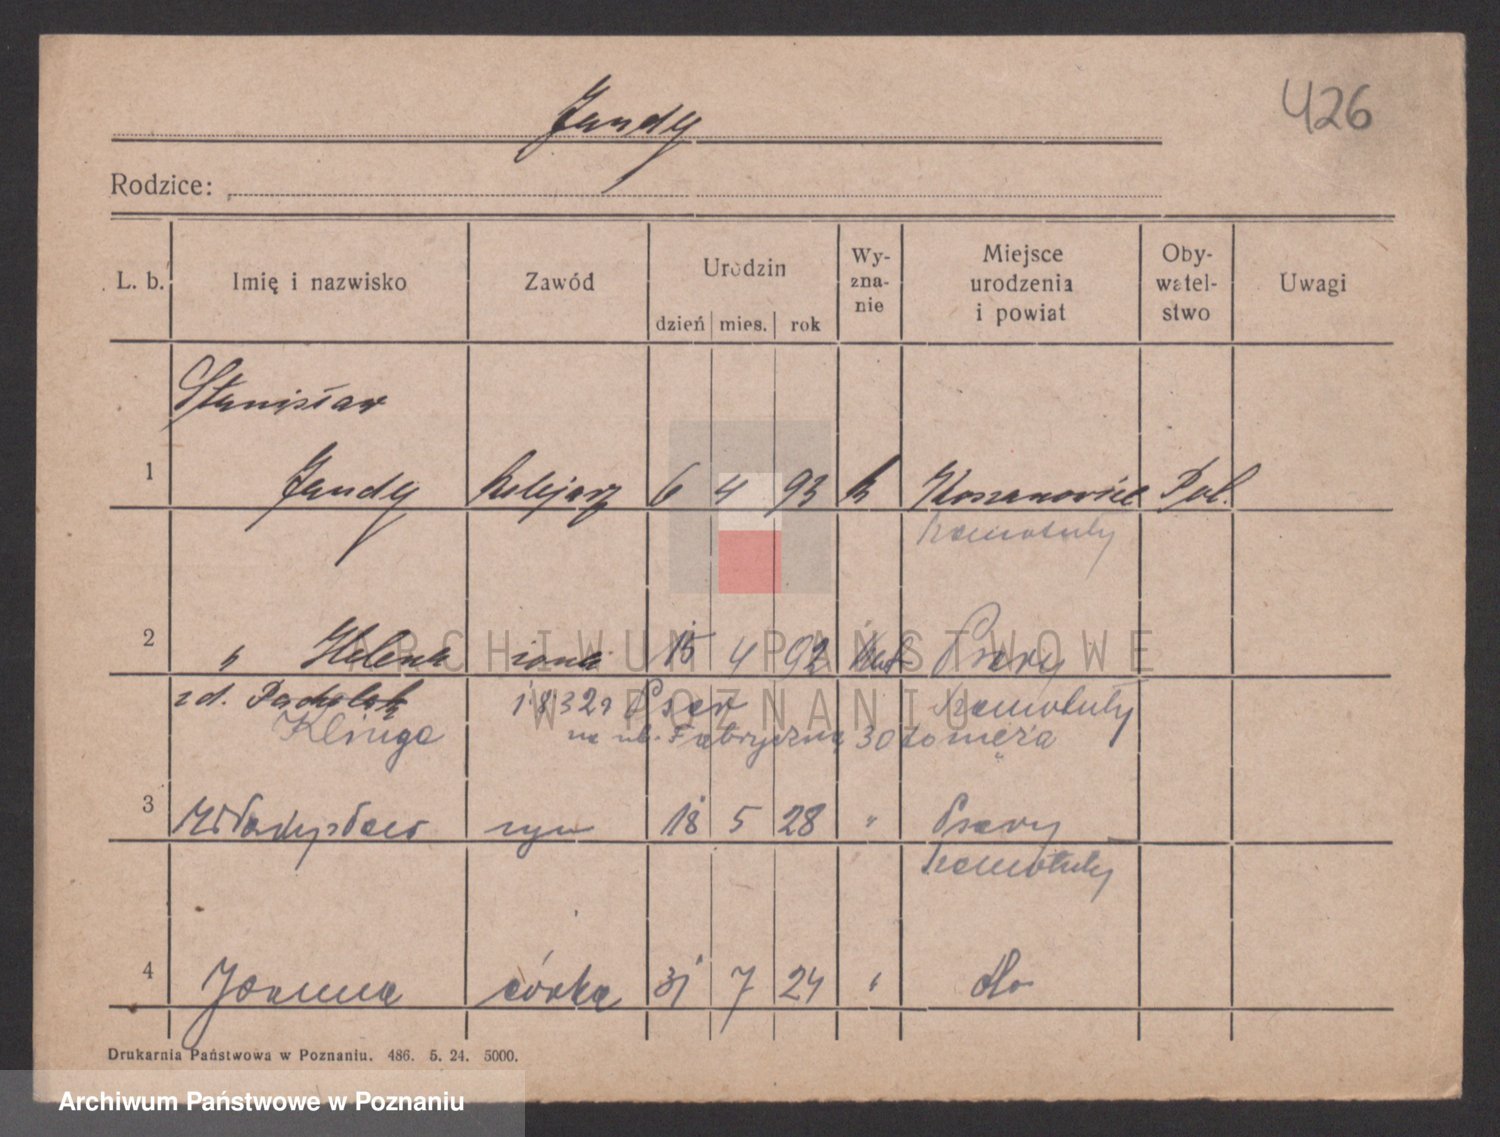 Jandy
426
Rodzice:
L. b. Imię i nazwisko Zawód Urodzin dzień mies. rok Wy-zna-nie Miejsce urodzenia i powiat Oby-watel-stwo Uwagi
Stanisław
1 Jandy kolejarz 6 4 93 k Koszanowice Pol.
Szamotuły
2 " Helena żona 15 4 92 kat Psary
zd. Pacholak 1832r Szamotuły
Klinga na ul. Fabryczną 30 do męża
3 Władysław syn 18 5 28 " Psary
Szamotuły
4 Joanna córka 31 7 24 " dto
Drukarnia Państwowa w Poznaniu. 486. 5. 24. 5000.
ARCHIWUM PAŃSTWOWE
W POZNANIU
Archiwum Państwowe w Poznaniu